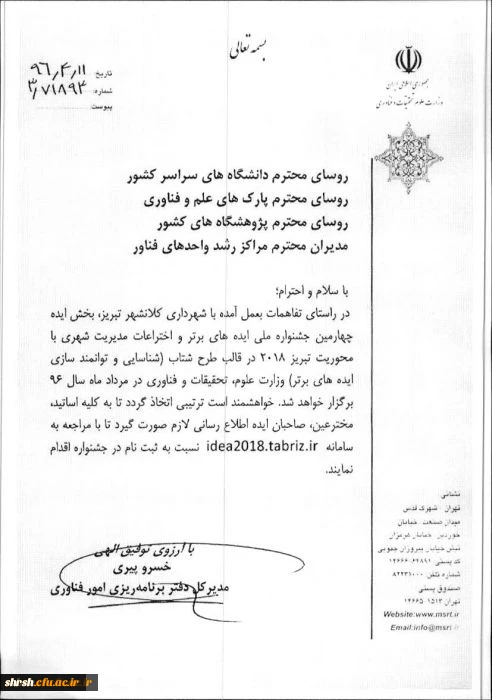 بسمه تعالی
جمهوری اسلامی ایران
وزارت علوم تحقیقات و فناوری
تاریخ: ۹۶/۴/۱۱
شماره: ۳/۷۱۸۹۳
پیوست:
روسای محترم دانشگاه های سراسر کشور
روسای محترم پارک های علم و فناوری
روسای محترم پژوهشگاه های کشور
مدیران محترم مراکز رشد واحدهای فناور
با سلام و احترام؛
در راستای تفاهمات بعمل آمده با شهرداری کلانشهر تبریز، بخش ایده
چهارمین جشنواره ملی ایده های برتر و اختراعات مدیریت شهری با
محوریت تبریز ۲۰۱۸ در قالب طرح شتاب (شناسایی و توانمند سازی
ایده های برتر) وزارت علوم، تحقیقات و فناوری در مرداد ماه سال ۹۶
برگزار خواهد شد. خواهشمند است ترتیبی اتخاذ گردد تا به کلیه اساتید،
مخترعین، صاحبان ایده اطلاع رسانی لازم صورت گیرد تا با مراجعه به
سامانه idea2018.tabriz.ir نسبت به ثبت نام در جشنواره اقدام
نمایند.
با آرزوی توفیق الهی
خسرو پیری
مدیر کل دفتر برنامه‌ریزی امور فناوری
نشانی
تهران - شهرک قدس
میدان صنعت خیابان
خوردین خیابان هرمزان
نبش خیابان پیروزان جنوبی
کد پستی ۱۴۶۶۶-۶۴۸۹۱
شماره تلفن ۸۲۲۳۱۰۰۰
صندوق پستی
تهران ۱۵۱۳-۱۴۶۶۵
Website:www.msrt.ir
Email:info@msrt.ir
shrsh.cfu.ac.ir